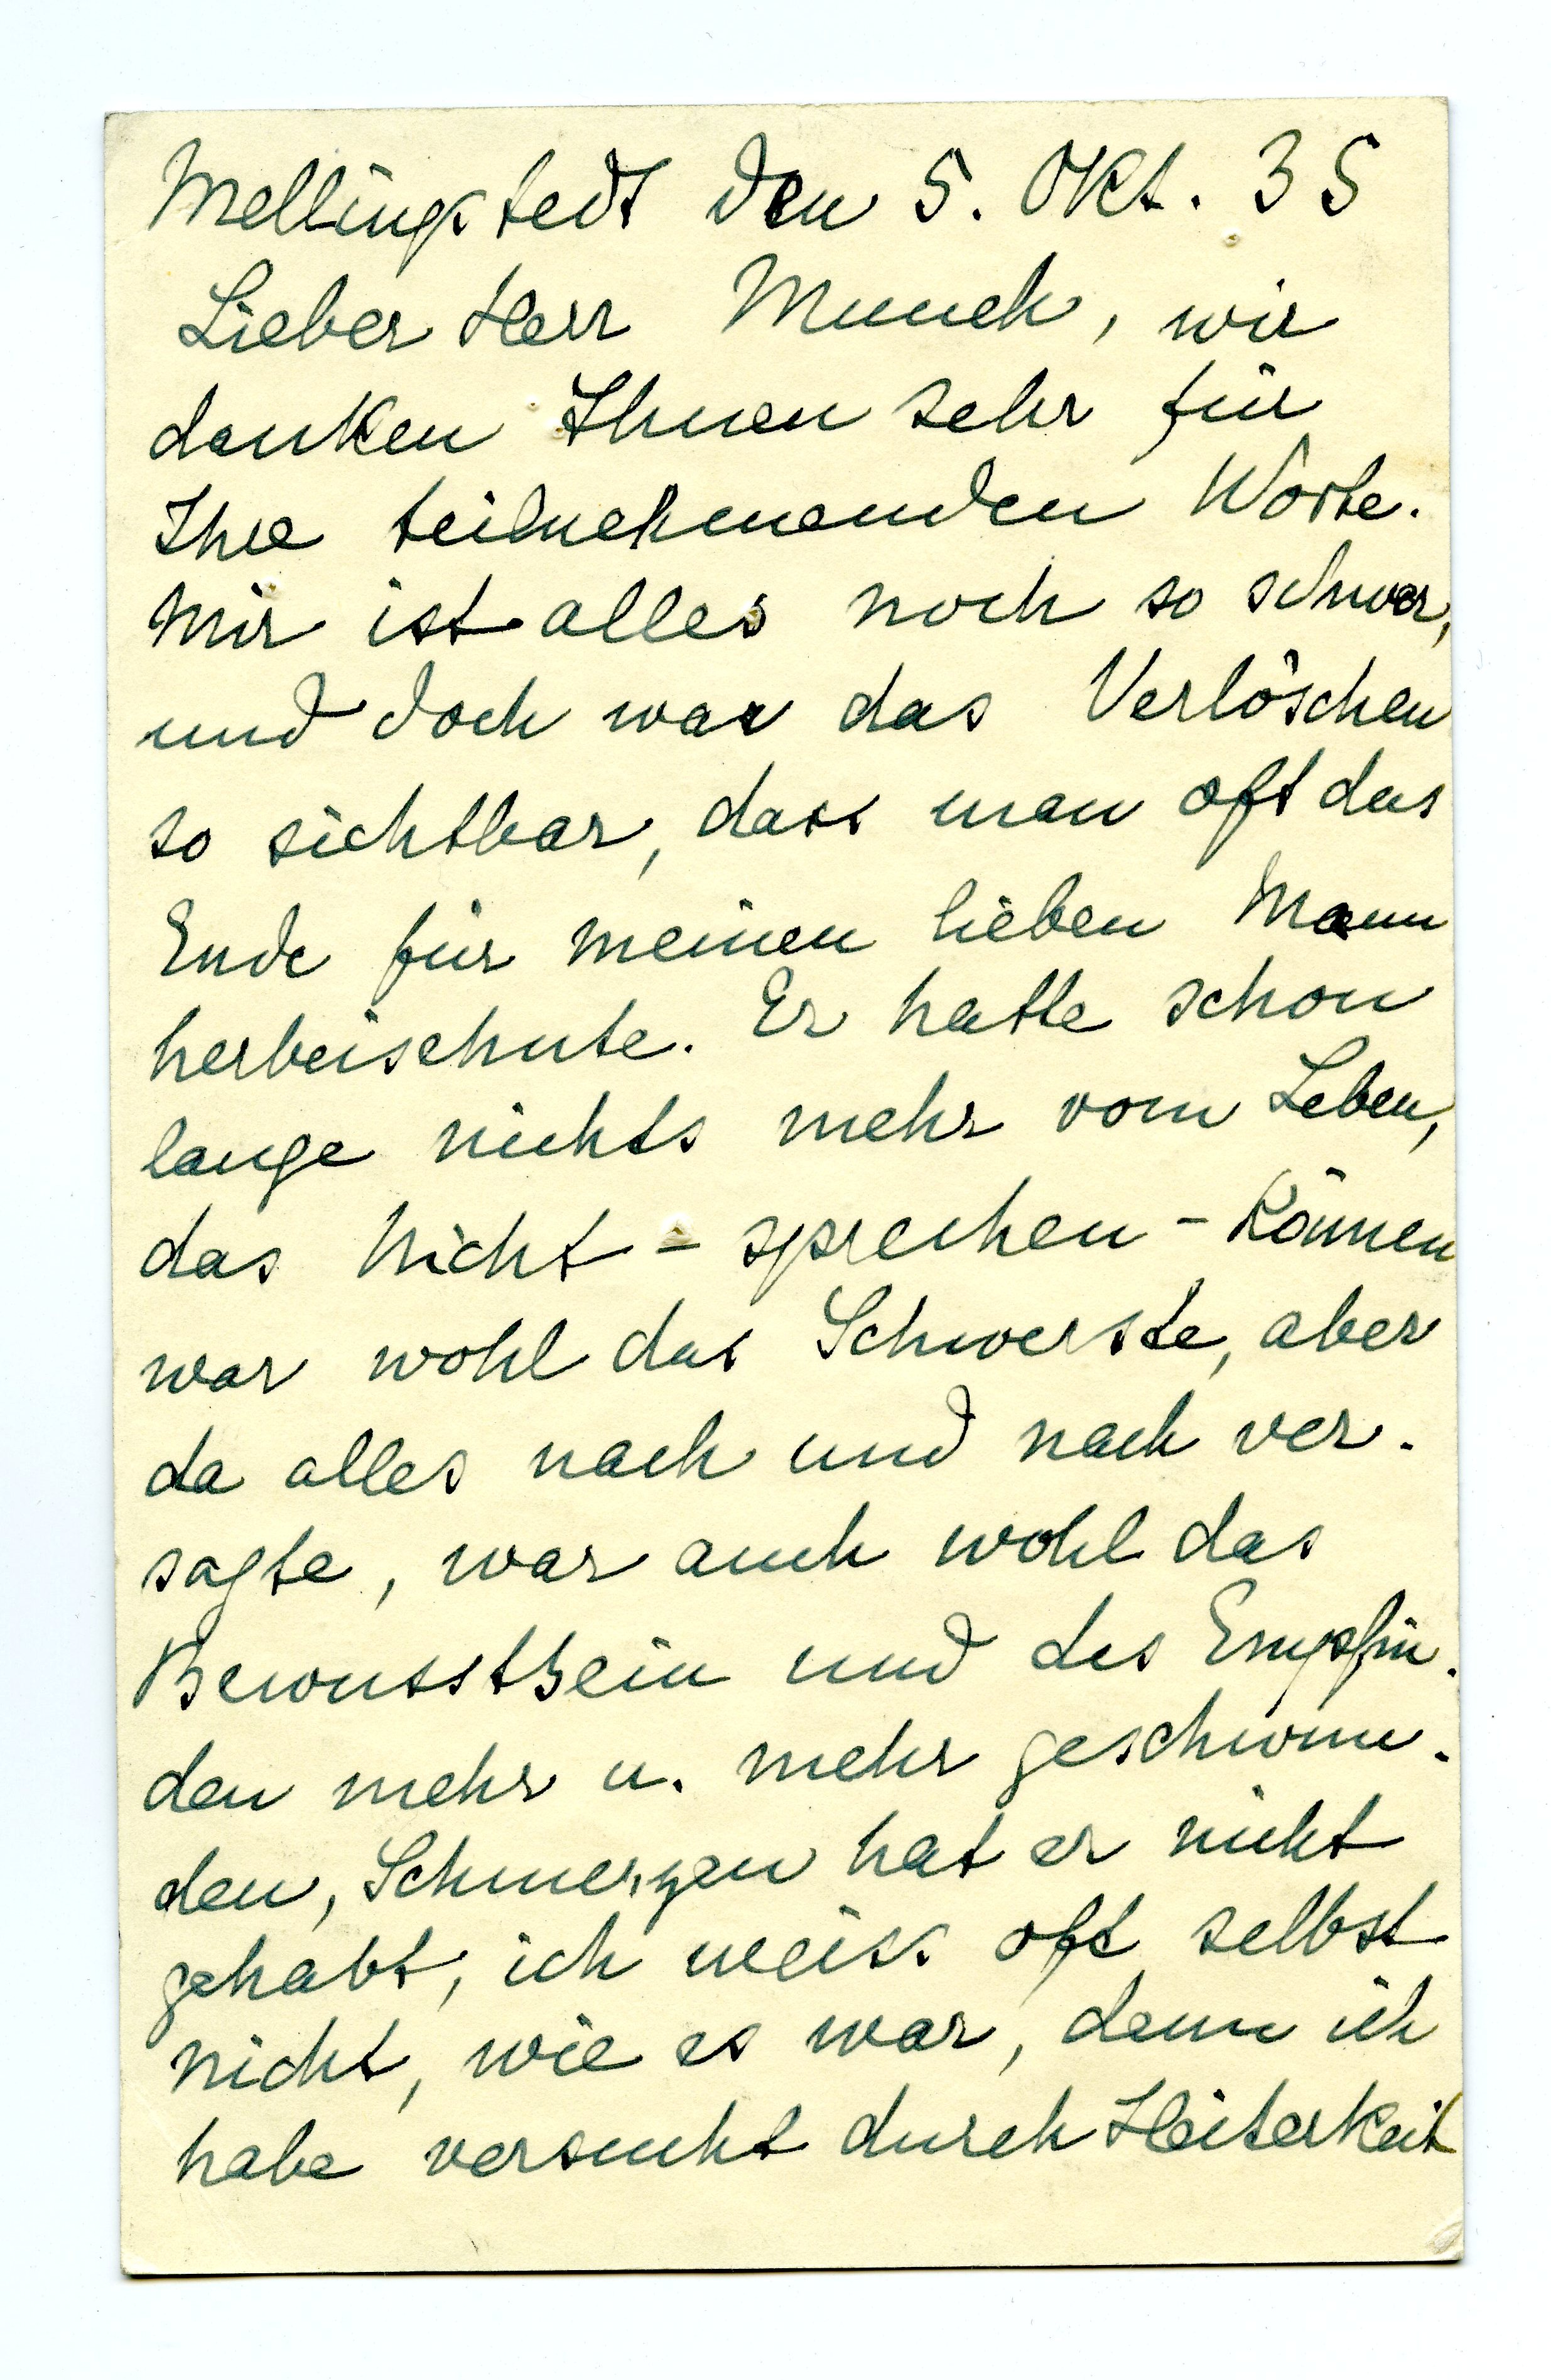 Mellingstedt den 5. Okt. 35
Lieber Herr Munch, wir
danken Ihnen sehr für
Ihre teilnehmenden Worte.
Mir ist alles noch so schwer,
und doch war das Verlöschen
so sichtbar, dass man oft das
Ende für meinen lieben Mann
herbeisehnte. Er hatte schon
lange nichts mehr vom Leben,
das Nicht-sprechen-Können
war wohl das Schwerste, aber
da alles nach und nach ver-
sagte, war auch wohl das
Bewusstsein und das Empfin-
den mehr u. mehr geschwun-
den, Schmerzen hat er nicht
gehabt, ich weiss oft selbst
nicht, wie es war, denn ich
habe versucht durch Heiterkeit